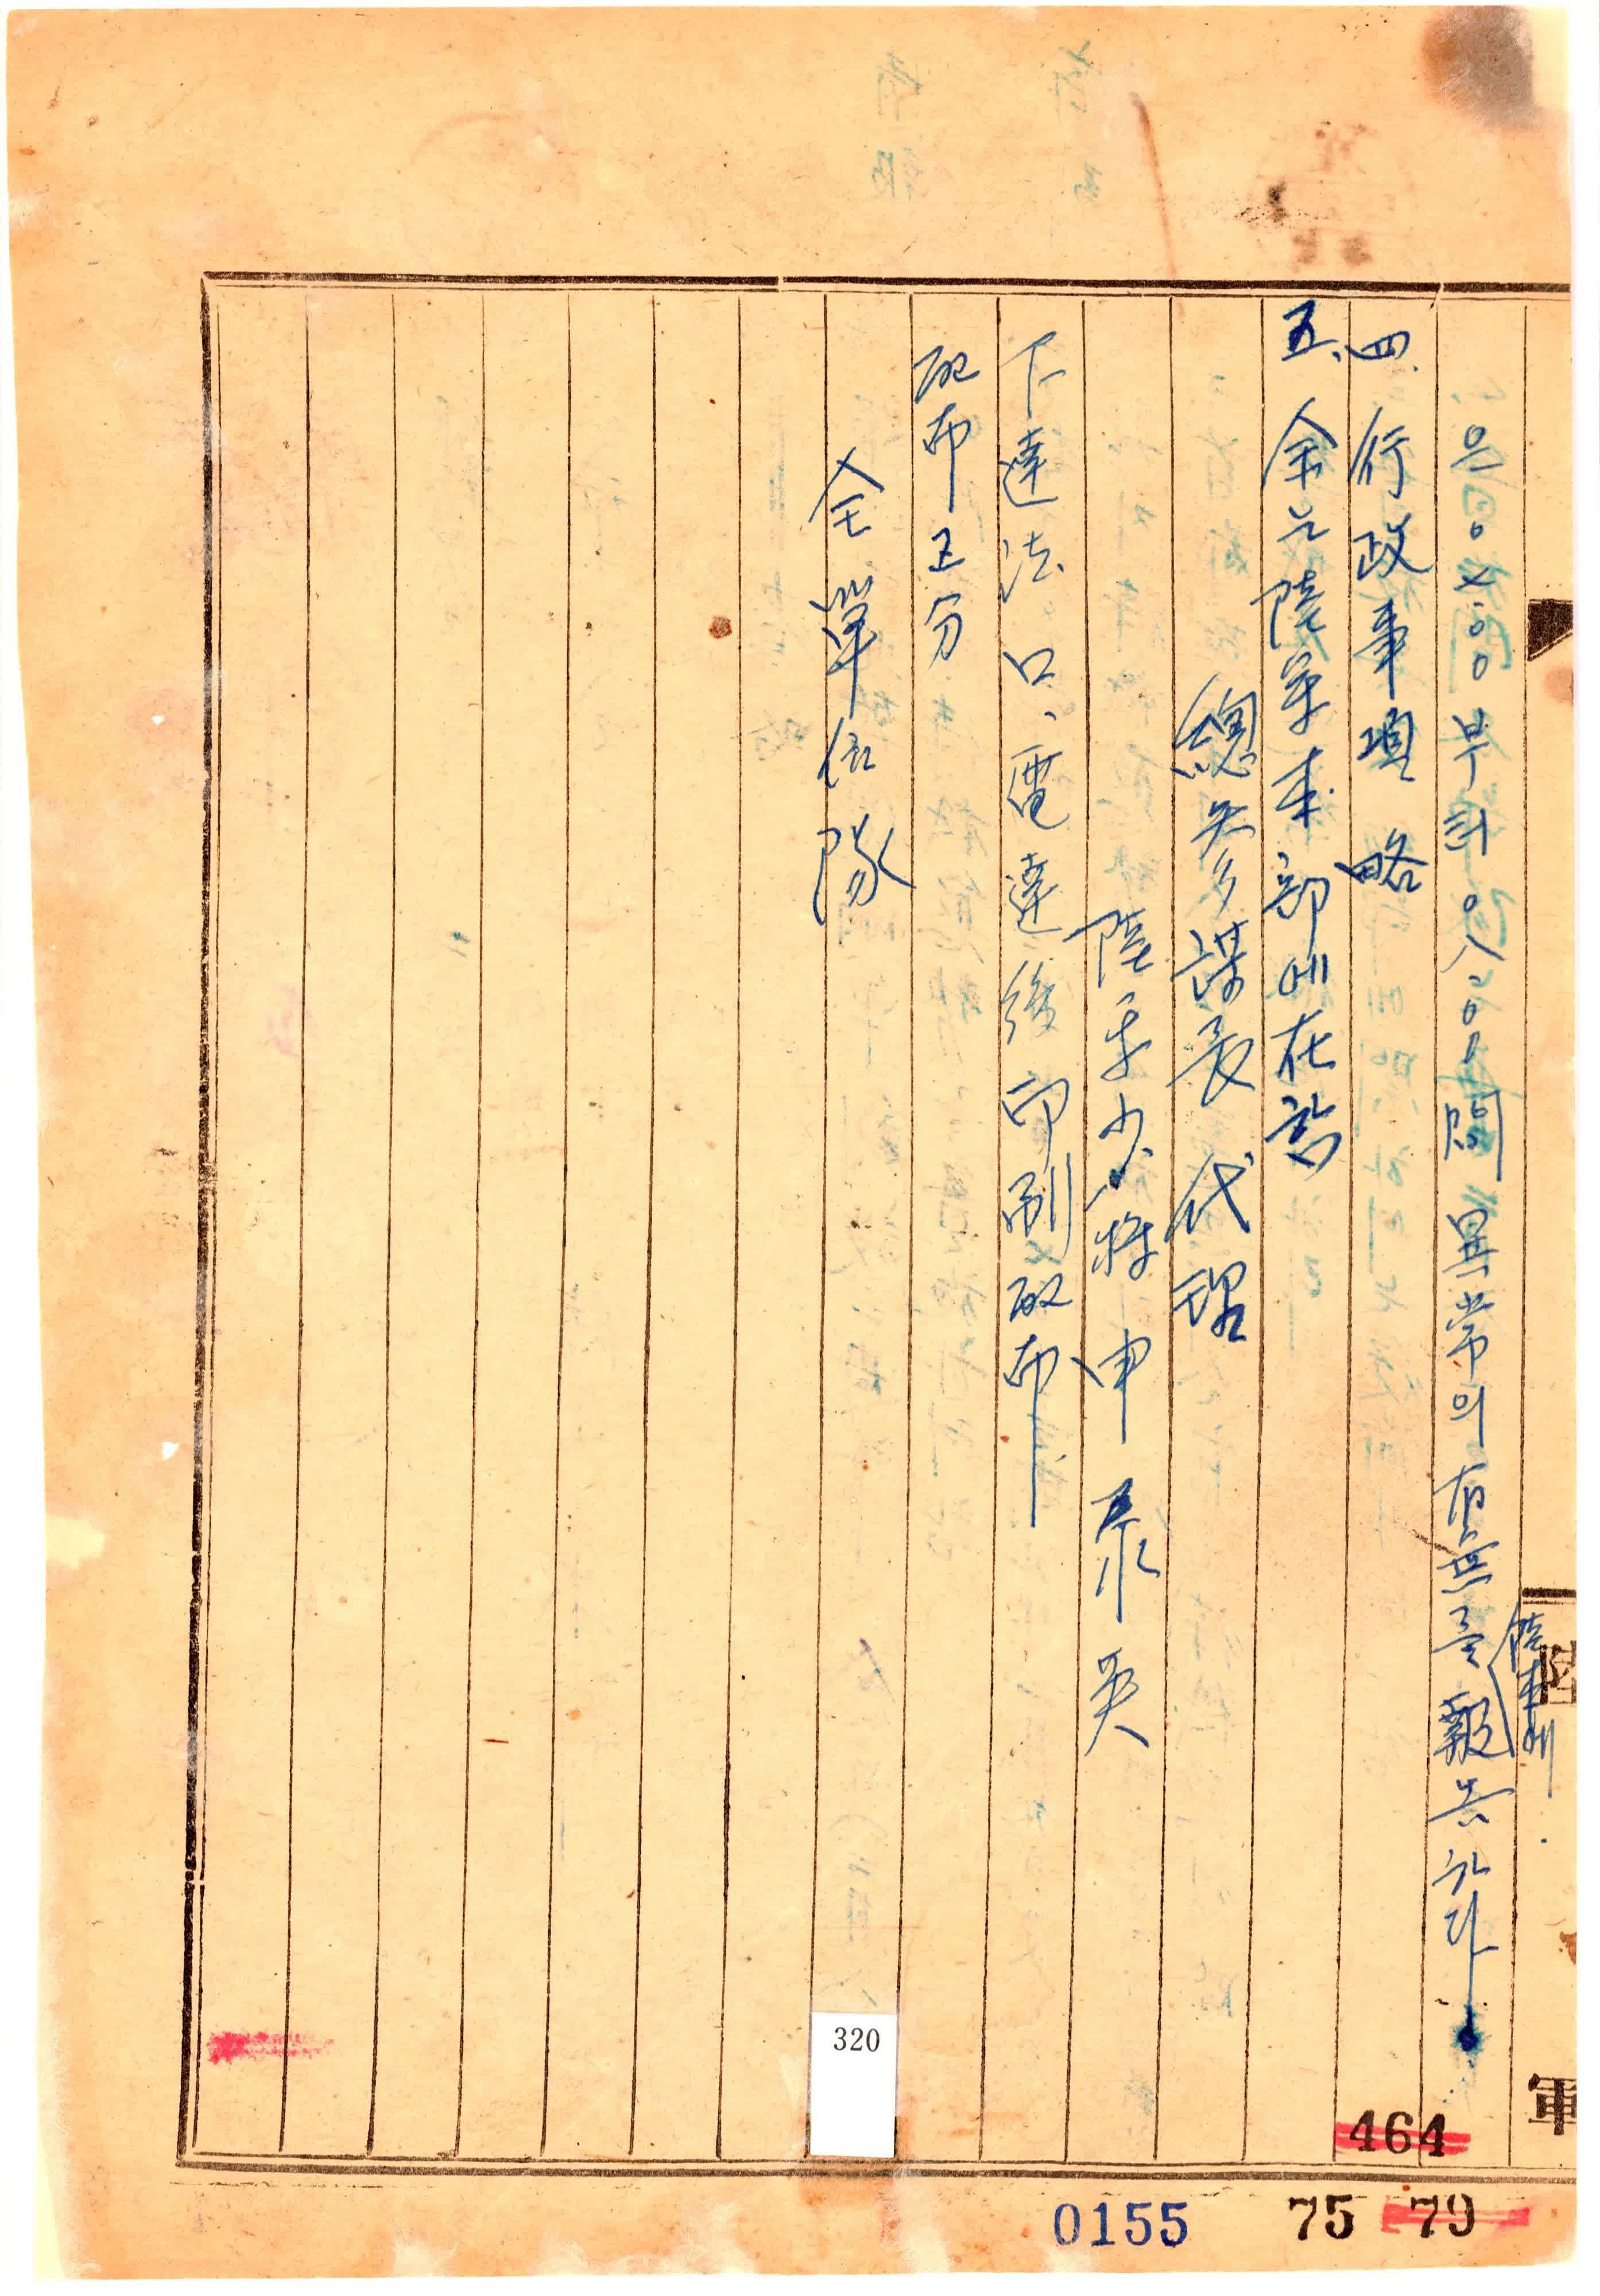 은 ㅇ五:ㅇㅇ 부터 ㅇ八:ㅇㅇ 間 異常의 有無를 陸本에 報告하라
四、行政事項 略
五、余는 陸軍本部에 在함
總參謀長 代理
陸軍少將 申泰英
下達法 口、電達後 印刷配布
配布区分
全單位隊
陸
軍
320
464
0155 75 79